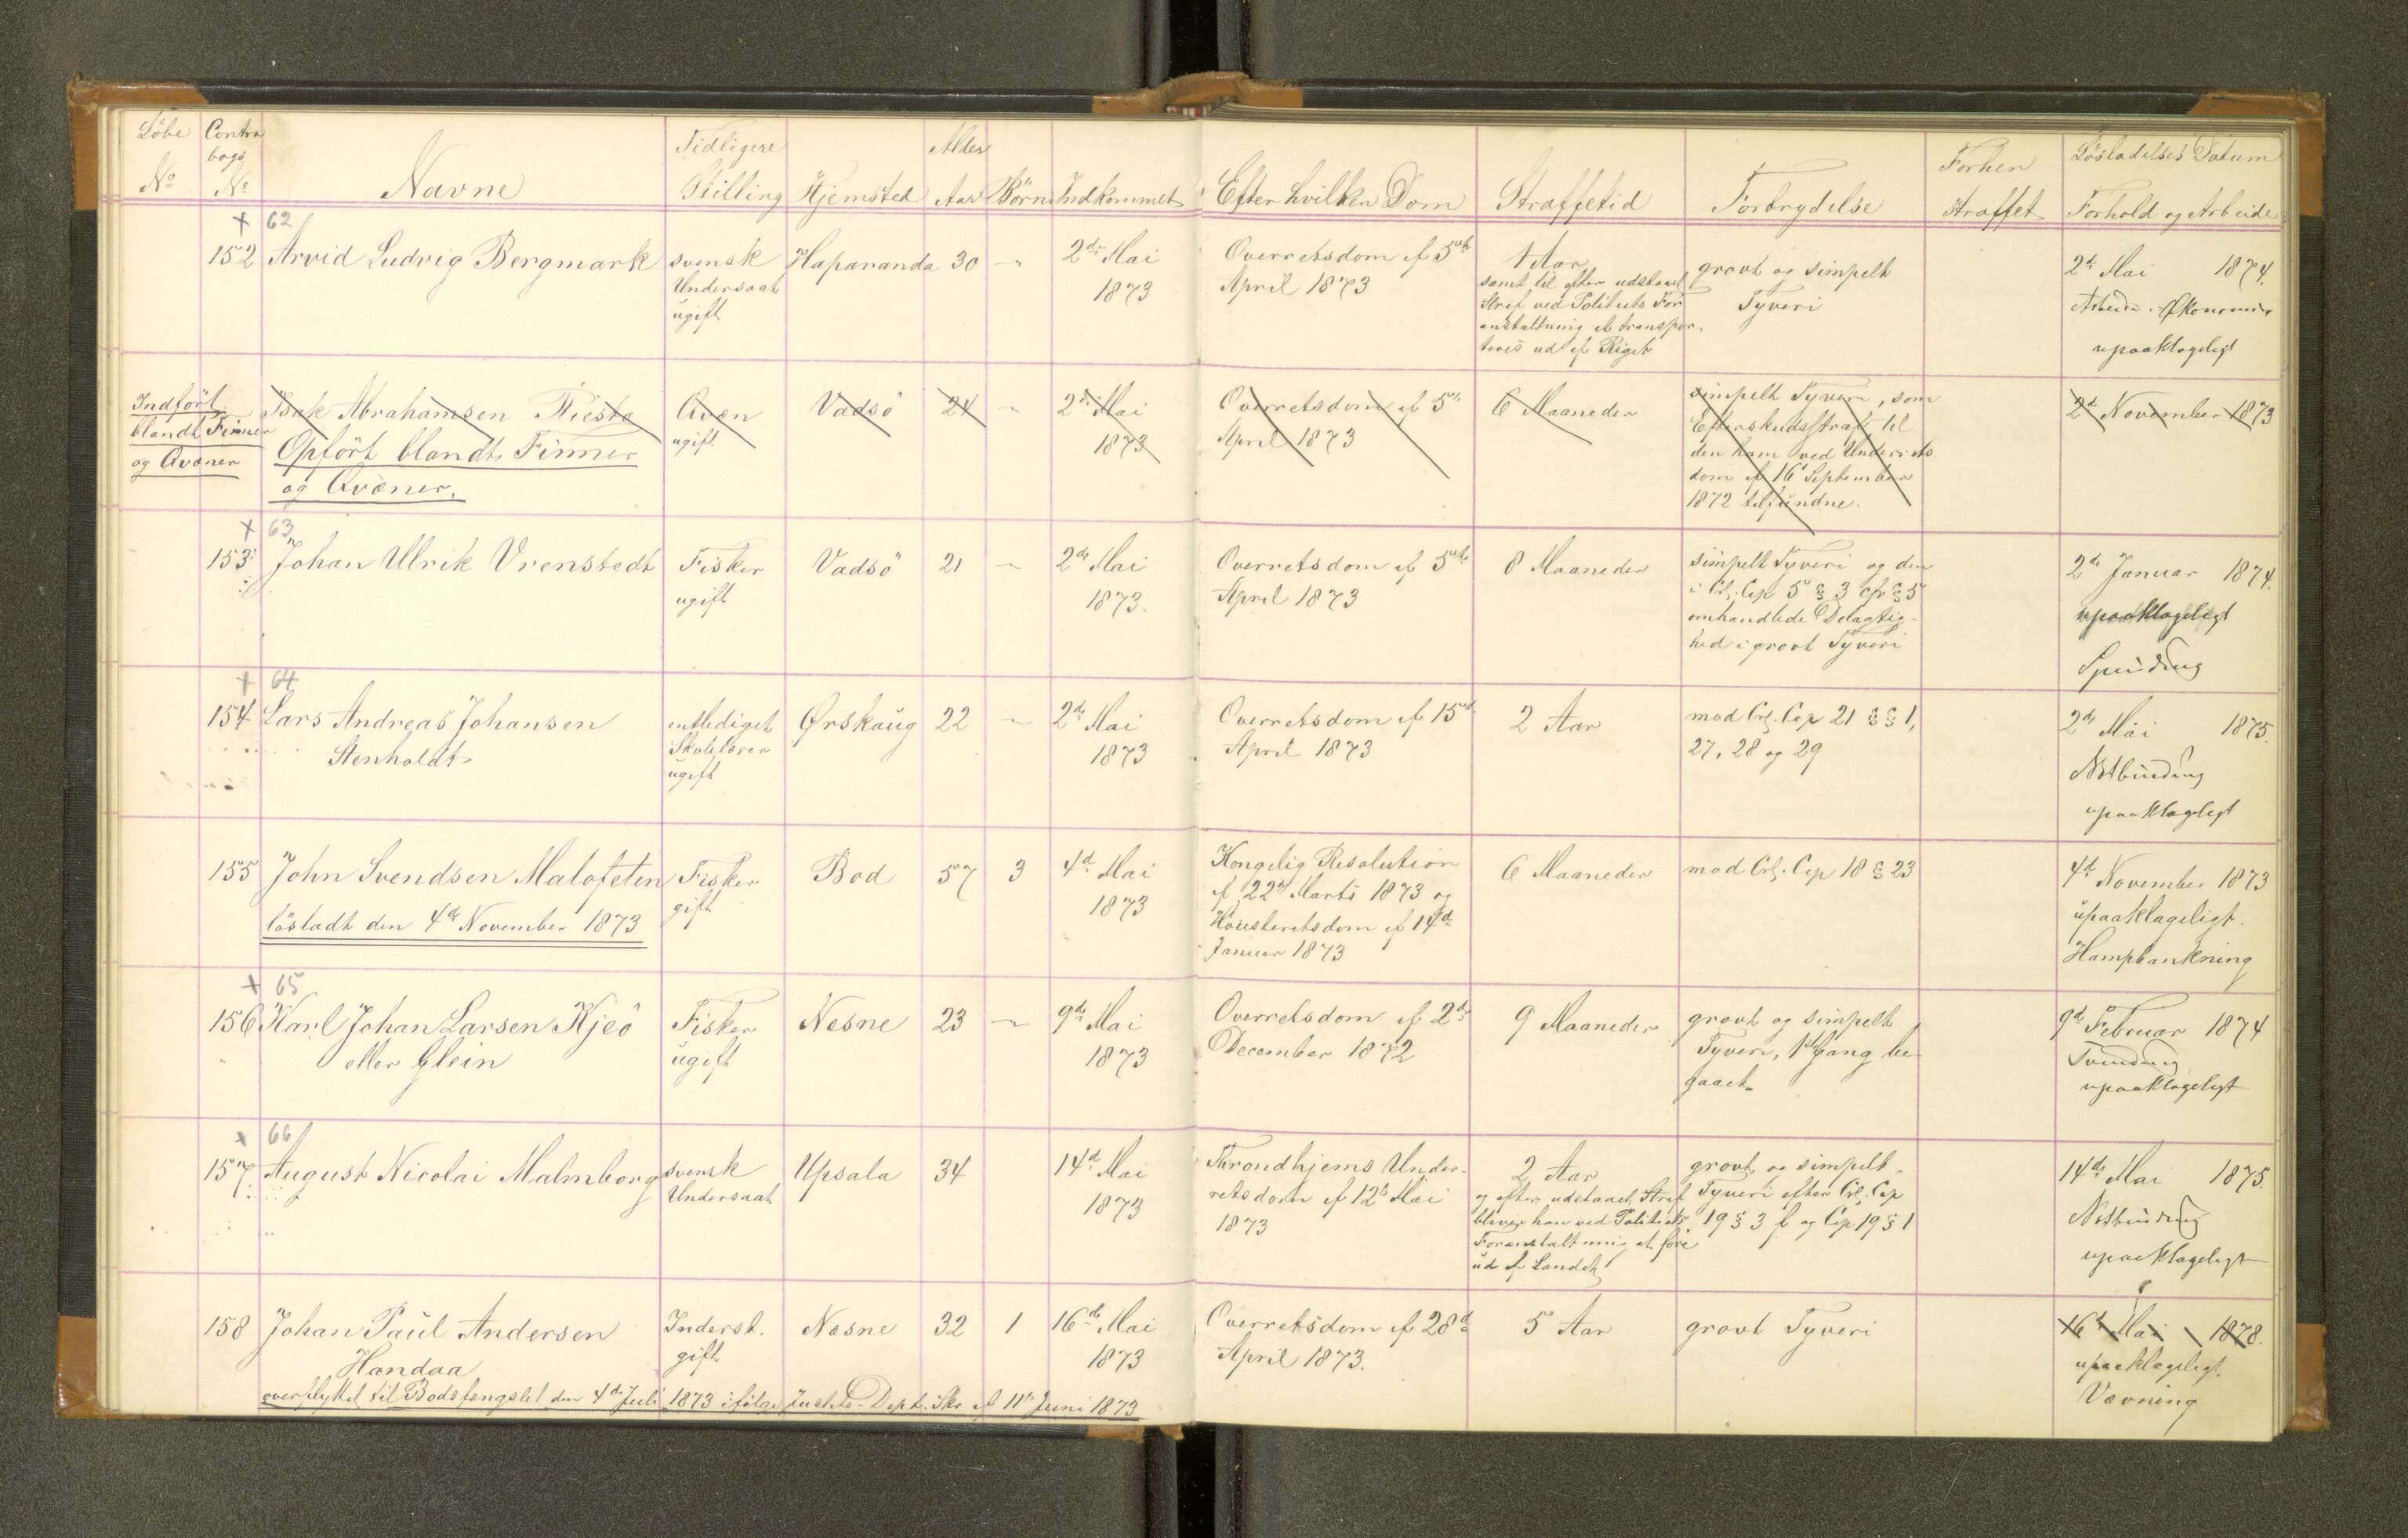 Löbe No
Contra bogs No
Navne
Tidligere Stilling
Hjemsted
Alder Aar
Börn
Indkommet
Efter hvilken Dom
Straffetid
Forbrydelse
Forhen straffet
Lösladelses Datum
Forhold og Arbeide
+ 62
152 Arvid Ludvig Bergmark
svensk
Undersaat
ugift
Haparanda
30
"
2den Mai
1873
Overretsdom af 5te
April 1873
1 Aar
samt til efter udstaaet
Straf ved Politiets For
anstaltning at transpor-
teres ud af Riget
grovt og simpelt
Tyveri
2de Mai 1874.
Arbeide: Økonomie
upaaklageligt
Indfört
blandt Finner
og Qvæner
Isak Abrahamsen Niesta
Opfört blandt Finner
og Qvæner.
Qvæn
ugift
Vadsö
24
"
2de Mai
1873
Overretsdom af 5te
April 1873
6 Maaneder
simpelt Tyveri, som
Efterskudsstraf til
den ham ved Underrets
dom af 16d September
1872 tilfundne.
2d November 1873
+ 63
153 Johan Ulrik Vrenstedt
Fisker
ugift
Vadsö
21
"
2de Mai
1873.
Overretsdom af 5te
April 1873
8 Maaneder
simpelt Tyveri og den
i Crl. Cap 5 § 3 cfr § 5
omhandlede Delagtig-
hed i grovt Tyveri
2de Januar 1874.
upaaklageligt
Spinding
+ 64
154 Lars Andreas Johansen
Stenholdt
entlediget
Skolelærer
ugift
Ørskaug
22
"
2de Mai
1873
Overretsdom af 15d
April 1873
2 Aar
mod Crl. Cap 21 §§ 1,
27, 28 og 29
2de Mai 1875.
Notbinding
upaaklageligt
155 John Svendsen Malofeten
löstadt den 4de November 1873
Fisker
gift
Bod
57
3
4d Mai
1873
Kongelig Resolution
af 22d Marts 1873 og
Höiesteretsdom af 14de
Januar 1873
6 Maaneder
mod Crl. Cap 18 § 23
4de November 1873
upaaklageligt.
Hampbankning
+ 65
156 Karl Johan Larsen Kjeö
eller Glein
Fisker
ugift
Nesne
23
"
9de Mai
1873
Overretsdom af 2de
December 1872
9 Maaneder
grovt og simpelt
Tyveri, 1ste Gang be-
gaaet
9d Februar 1874
Tvinding
upaaklageligt
+ 66
157 August Nicolai Malmborg
svensk
Undersaat
Upsala
34
14d Mai
1873
Throndhjems Under-
retsdom af 12te Mai
1873
2 Aar
og efter udstaaet Straf
bliver han ved Politiets
Foranstaltning at före
ud af Landet
grovt og simpelt
Tyveri efter Crl. Cap
19 § 3 f og Cap 19 § 1
14de Mai 1875.
Notbinding
upaaklageligt
158 Johan Paul Andersen
Handaa
overflyttet til Bodsfengslet den 4de Juli 1873 ifölge Justits-Dept. Skr af 11te Juni 1873
Inderst.
gift
Næsne
32
1
16de Mai
1873
Overretsdom af 28d
April 1873.
5 Aar
grovt Tyveri
16d Mai 1878.
upaaklageligt.
Vævning